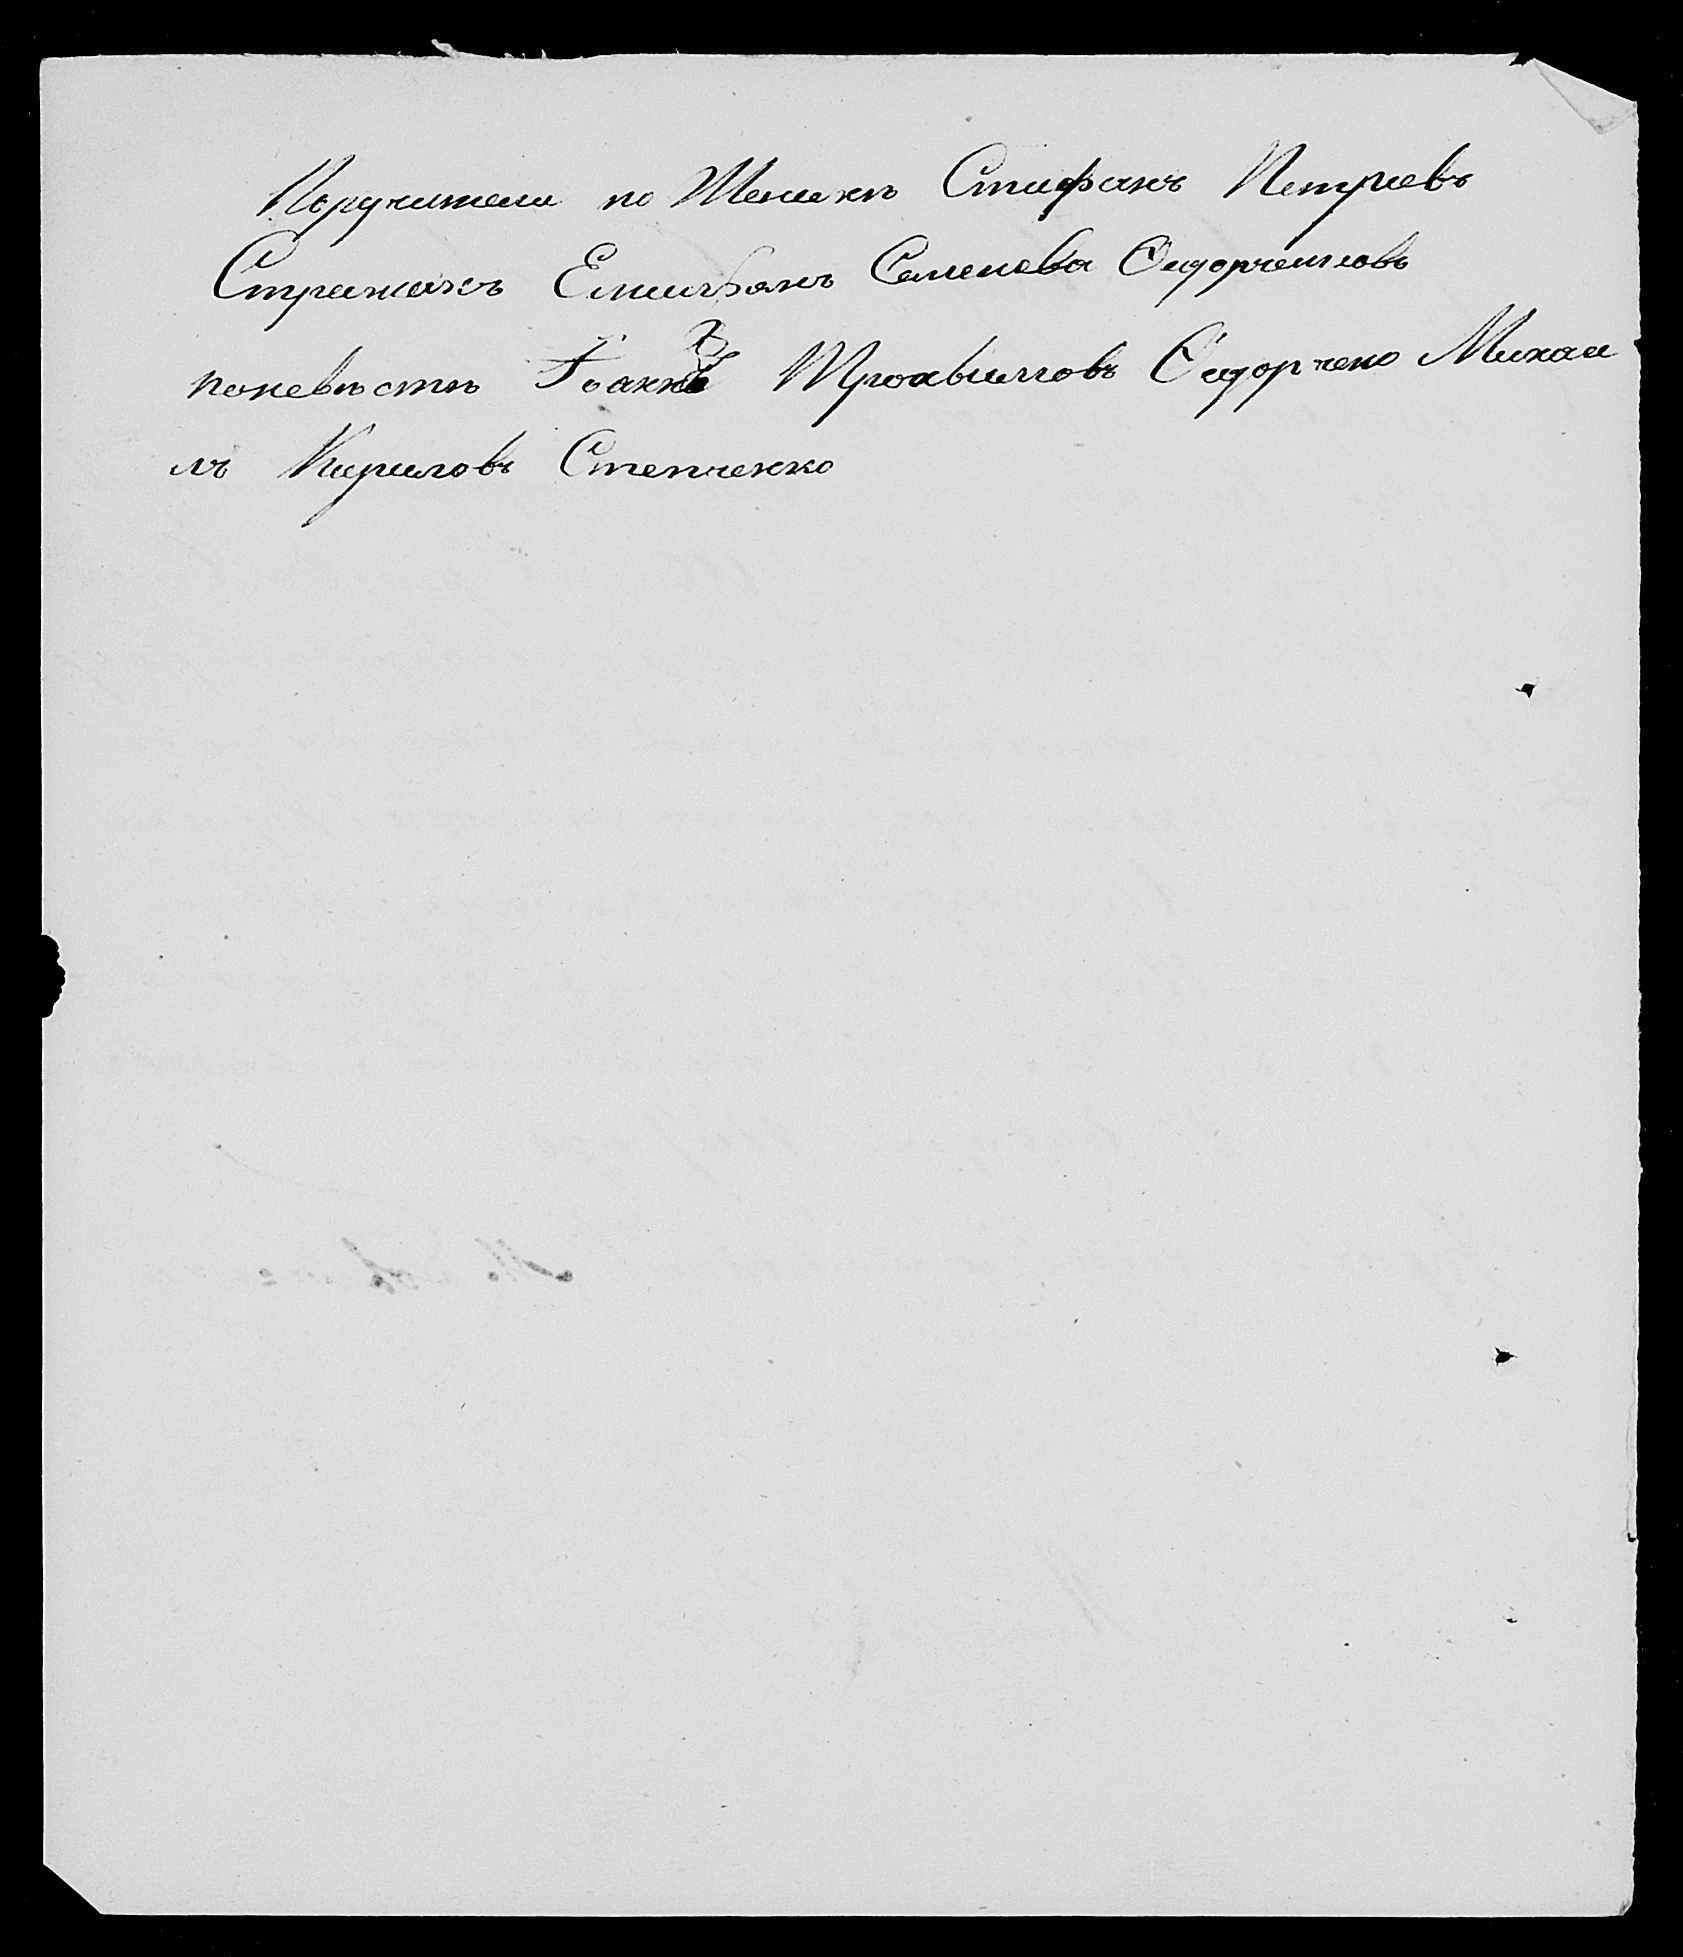 Поручители по Женихѣ Стифанъ Петриевъ
Стрижакъ Емилъянъ Семенова Сидорченковъ
поневѣстѣ Іоаннъ Трохвимовъ Сидорчено Михаи
лъ Кириловъ Степченко